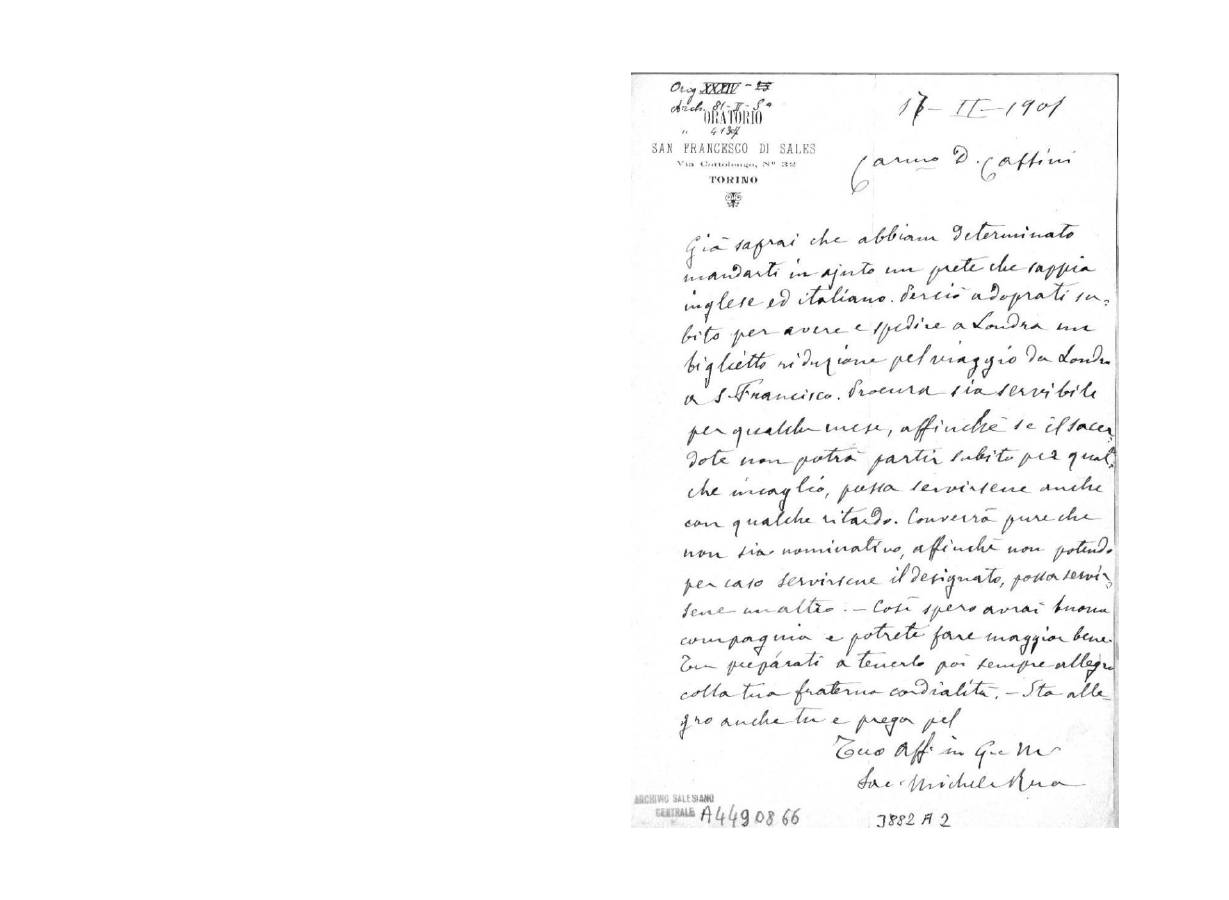 Orig XXXIV - 23
Arch. 81-II-5ª
ORATORIO
" 4137
SAN FRANCESCO DI SALES
Via Cottolengo, Nº 32
TORINO
II-1901
Carmo D. Cassini
Già saprai che abbiam determinato
mandarti in ajuto un prete che sappia
inglese ed italiano. Perciò adoprati su-
bito per avere e spedire a Londra un
biglietto riduzione pel viaggio da Londra
a S. Francisco. Procura sia servibile
per qualche mese, affinchè se il sacer-
dote non potrà partir subito per qual-
che incaglio, possa servirsene anche
con qualche ritardo. Converrà pure che
non sia nominativo, affinchè non potendo
per caso servirsene il designato, possa servir-
sene un altro. - Così spero avrai buona
compagnia e potrete fare maggior bene.
Tu prepárati a tenerlo poi sempre allegro
colla tua fraterna cordialità. - Sta alle-
gro anche tu e prega pel
Tuo Aff. in G. e M.
Sac. Michele Rua
ARCHIVIO SALESIANO
CENTRALE A4490866
3882 A 2